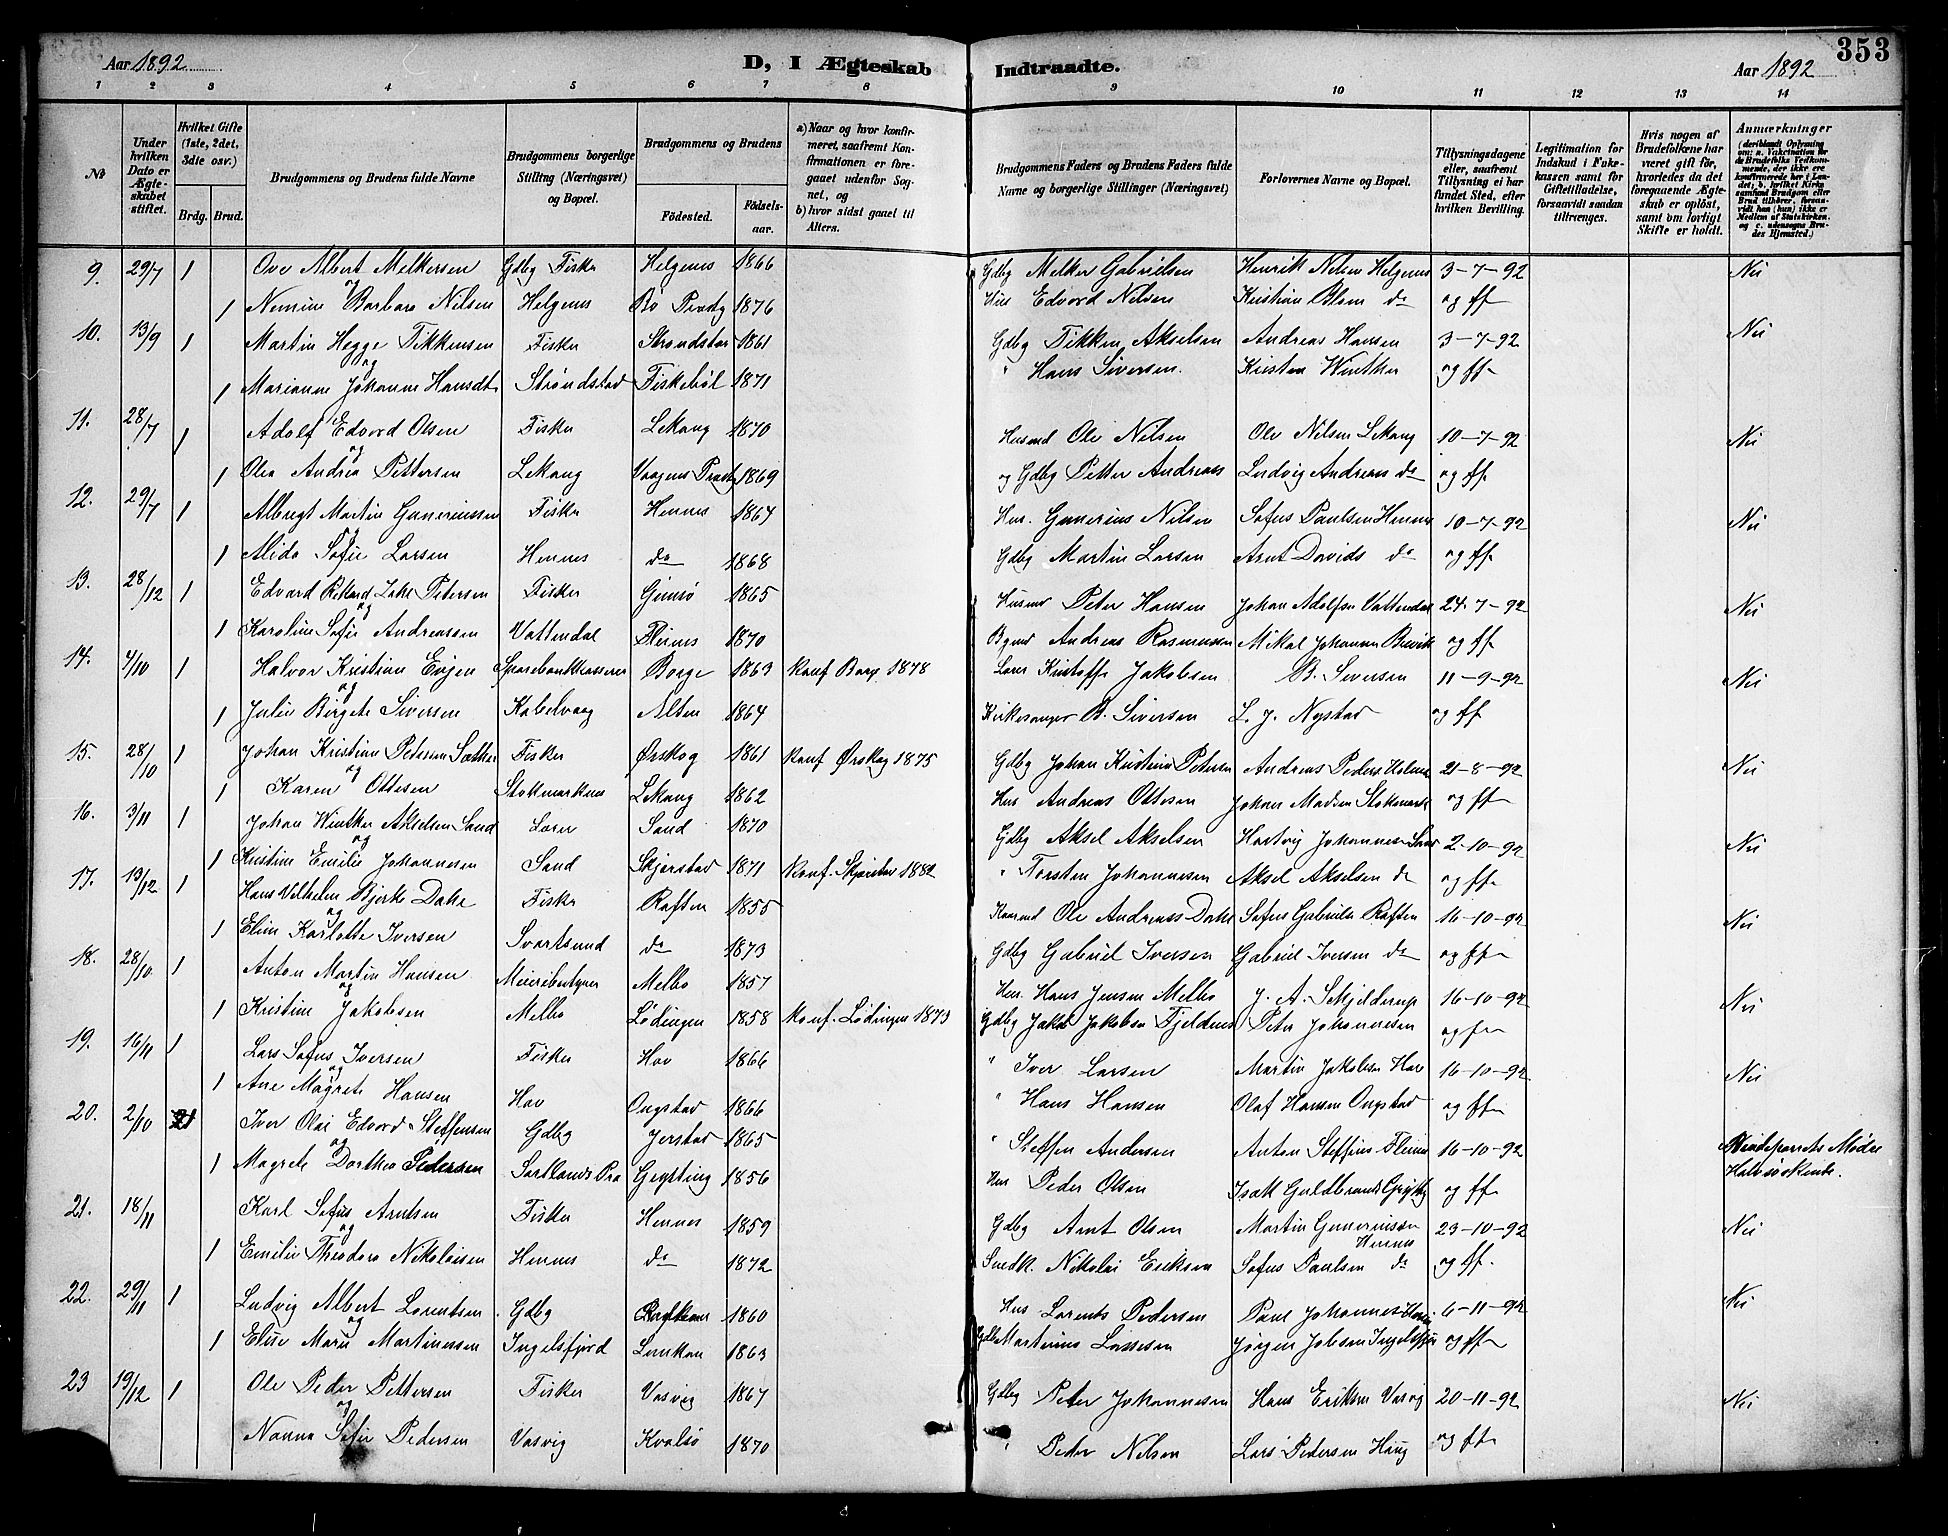 Aar 1892 D, I Ægteskab Indtraadte. Aar 1892 353
1 2 3 4 5 6 7 8 9 10 11 12 13 14
No
Under hvilken Dato er Ægteskabet stiftet.
Hvilket Gifte (1ste, 2det, 3die osv.)
Brdg. Brud.
Brudgommens og Brudens fulde Navne
Brudgommens borgerlige Stilling (Næringsvei) og Bopæl.
Brudgommens og Brudens
Fødested. Fødselsaar.
a) Naar og hvor konfirmeret, saafremt Konfirmationen er foregaaet udenfor Sognet, og
b) hvor sidst gaaet til Alters.
Brudgommens Faders og Brudens Faders fulde Navne og borgerlige Stillinger (Næringsvei)
Forlovernes Navne og Bopæl.
Tillysningsdagene eller, saafremt Tillysning ei har fundet Sted, efter hvilken Bevilling.
Legitimation for Indskud i Enkekassen samt for Giftetilladelse, forsaavidt saadan tiltrænges.
Hvis nogen af Brudefolkene har været gift før, hvorledes da det foregaaende Ægteskab er opløst, samt om lovligt Skifte er holdt.
Anmærkninger (deriblandt Oplysning om: a. Vakcination for de Brudefolks Vedkommende, der ikke ere konfirmerede her i Landet; b. hvilket Kirkesamfund Brudgom eller Brud tilhører, forsaavidt han (hun) ikke er Medlem af Statskirken, og c. udensogns Brudes Hjemsted.)
9. 29/7 1 Ove Albert Melkersen Gdbg Fisker Helgenes 1866 Gdbg Melker Gabrielsen Henrik Nilsen Helgenes 3-7-92 Nei
og
1 Nemine Barbara Nilsen Helgenes Bø 1876 Hus Edvard Nilsen Kristian do og ff
10. 13/9 1 Martin Hegge Tikkensen Fisker Strandstad 1861 Gdbg Tikken Akselsen Andreas Hansen 3-7-92 Nei
og
1 Marianne Johanne Hansdt Strandstad Fiskebøl 1871 " Hans Siversen. Kristen Winther og ff
11. 28/7 1 Adolf Edvard Olsen Fisker Lekang 1870 Husmd Ole Nilsen Ole Nilsen Lekang 10-7-92 Nei
og
1 Olea Andrea Pettersen Lekang 1869 og Gdbg Petter Andreass Ludvig Andreass do og ff
12. 29/7 1 Albregt Martin Guneriussen Fisker Hennes 1864 Hus. Gunerius Nilsen Sofus Paulsen Hennes 10-7-92 Nei
og
1 Alida Sofie Larsen Hennes do 1868 Gdbg Martin Larsen Arnt Davids do og ff
13. 28/12 1 Edvard Petersen Fisker Gimsø 1865 Husmd Peter Hansen Johan Adolfsen Vattendal 24-7-92 Nei
og
1 Karoline Sofie Andreassen Vattendal Fleines 1870 Andreas Rasmussen Mikal Johannsen og ff
14. 4/10 1 Halvor Kristian Evjen Sparebankkasserer Borge 1863 Konf Borge 1878 Lærer Kristoffer Jakobsen B. Siversen 11-9-92 Nei
og
1 Julie Birgete Siversen Kabelvaag Alten 1864 Kirkesanger B. Siversen L. J. Nystad og ff
15. 28/10 1 Johan Kristian Petersen Sæther Fisker Ørskog 1861 Konf Ørskog 1875 Gdbg Johan Kristian Petersen Andreas Peders 21-8-92 Nei
og
1 Karen Ottesen Stokmarknes Lekang 1862 Hus Andreas Ottesen Johan Madsen Stokmark og ff
16. 3/11 1 Johan Winther Akselsen Sand Lærer Sand 1870 Gdbg Aksel Akselsen Hartvig Johannesen Sand 2-10-92 Nei
og
1 Kristine Emilie Johannesen Sand Skjerstad 1871 Konf. Skjerstad 1882 " Torsten Johannesen Aksel Akselsen do og ff
17. 19/12 1 Hans Vilhelm Bjerke Dahl Fisker Raften 1855 Ole Andreass Dahl Sofus Gabriels Raften 16-10-92 Nei
og
1 Eline Karlotte Iversen Svartsund do 1873 Gdbg Gabriel Iversen Gabriel Iversen do og ff
18. 28/10 1 Anton Martin Hansen Meieribestyrer Melbo 1857 Hus. Hans Jensen Melbo J. A. Skjelderup 16-10-92 Nei
og
1 Kristine Jakobsen Melbo Lødingen 1858 Konf. Lødingen 1873 Gdbg Jakob Jakobsen Fjeldnes Peter Johannesen og ff
19. 16/11 1 Lars Sofus Iversen Fisker Hov 1866 " Iver Larsen Martin Jakobsen Hov 16-10-92 Nei
og
1 Ane Magrete Hansen Hov Ongstad 1866 " Hans Hansen Olaf Hansen Ongstad og ff
20. 2/10 1 Iver Olai Edvard Steffensen Gdbg Jerstad 1865 " Steffen Andersen Anton Steffens Fleines 16-10-92 Brudeparrets Mødre
og
1 Magrete Dorthea Pedersen Sortlands Pra Grytting 1856 Hus Peder Olsen Isak Guldbrands Grytting og ff Halvsøskende.
21. 18/11 Karl Sofus Arntsen Fisker Hennes 1859 Gdbg Arnt Olsen Martin Guneriussen Hennes 23-10-92 Nei
og
1 Emilie Theodora Nikolaisen Hennes do 1872 Snedk. Nikolai Eriksen Sofus Paulsen do og ff.
22. 29/11 1 Ludvig Albert Lorentsen Gdbg 1860 Hus Lorents Pedersen Paul Johannes 6-11-92 Nei
og
1 Elise Marie Martinussen Ingelsfjord Lonkan 1863 Gdb Martinus Lassesen Jørgen Jakobsen Ingelsfjord og ff
23 19/12 1 Ole Peder Pettersen Fisker Vasvig 1867 Gdbg Peter Johannesen Hans Eriksen Vasvig 20-11-92 Nei
og
Nanna Sofie Pedersen Vasvig Kvalsø 1870 " Peder Nilsen Lars Pedersen Haug og ff